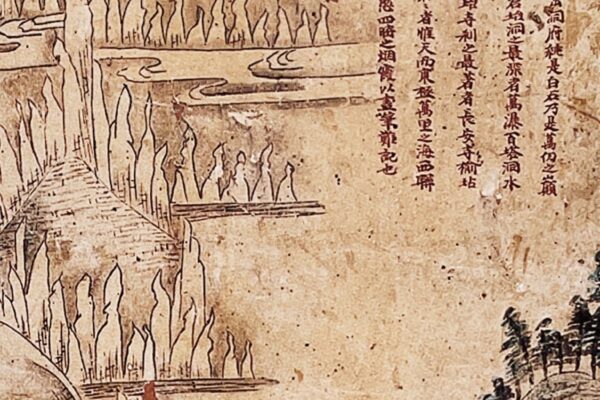 洞府縫是白石乃是萬仞之巓
洞之最深者萬瀑百塔洞水
寺刹之最著者長安寺榆坫
者惟天西東極萬里之海西聯
四時之烟霞以畫筆難記也